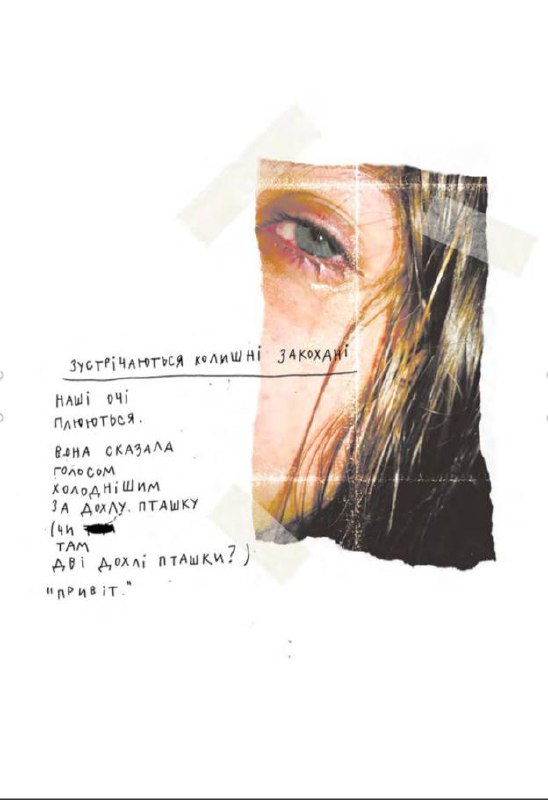 зустрічаються колишні закохані
наші очі
плюються.
вона сказала
голосом
холоднішим
за дохлу пташку
(чи
там
дві дохлі пташки?)
"привіт."